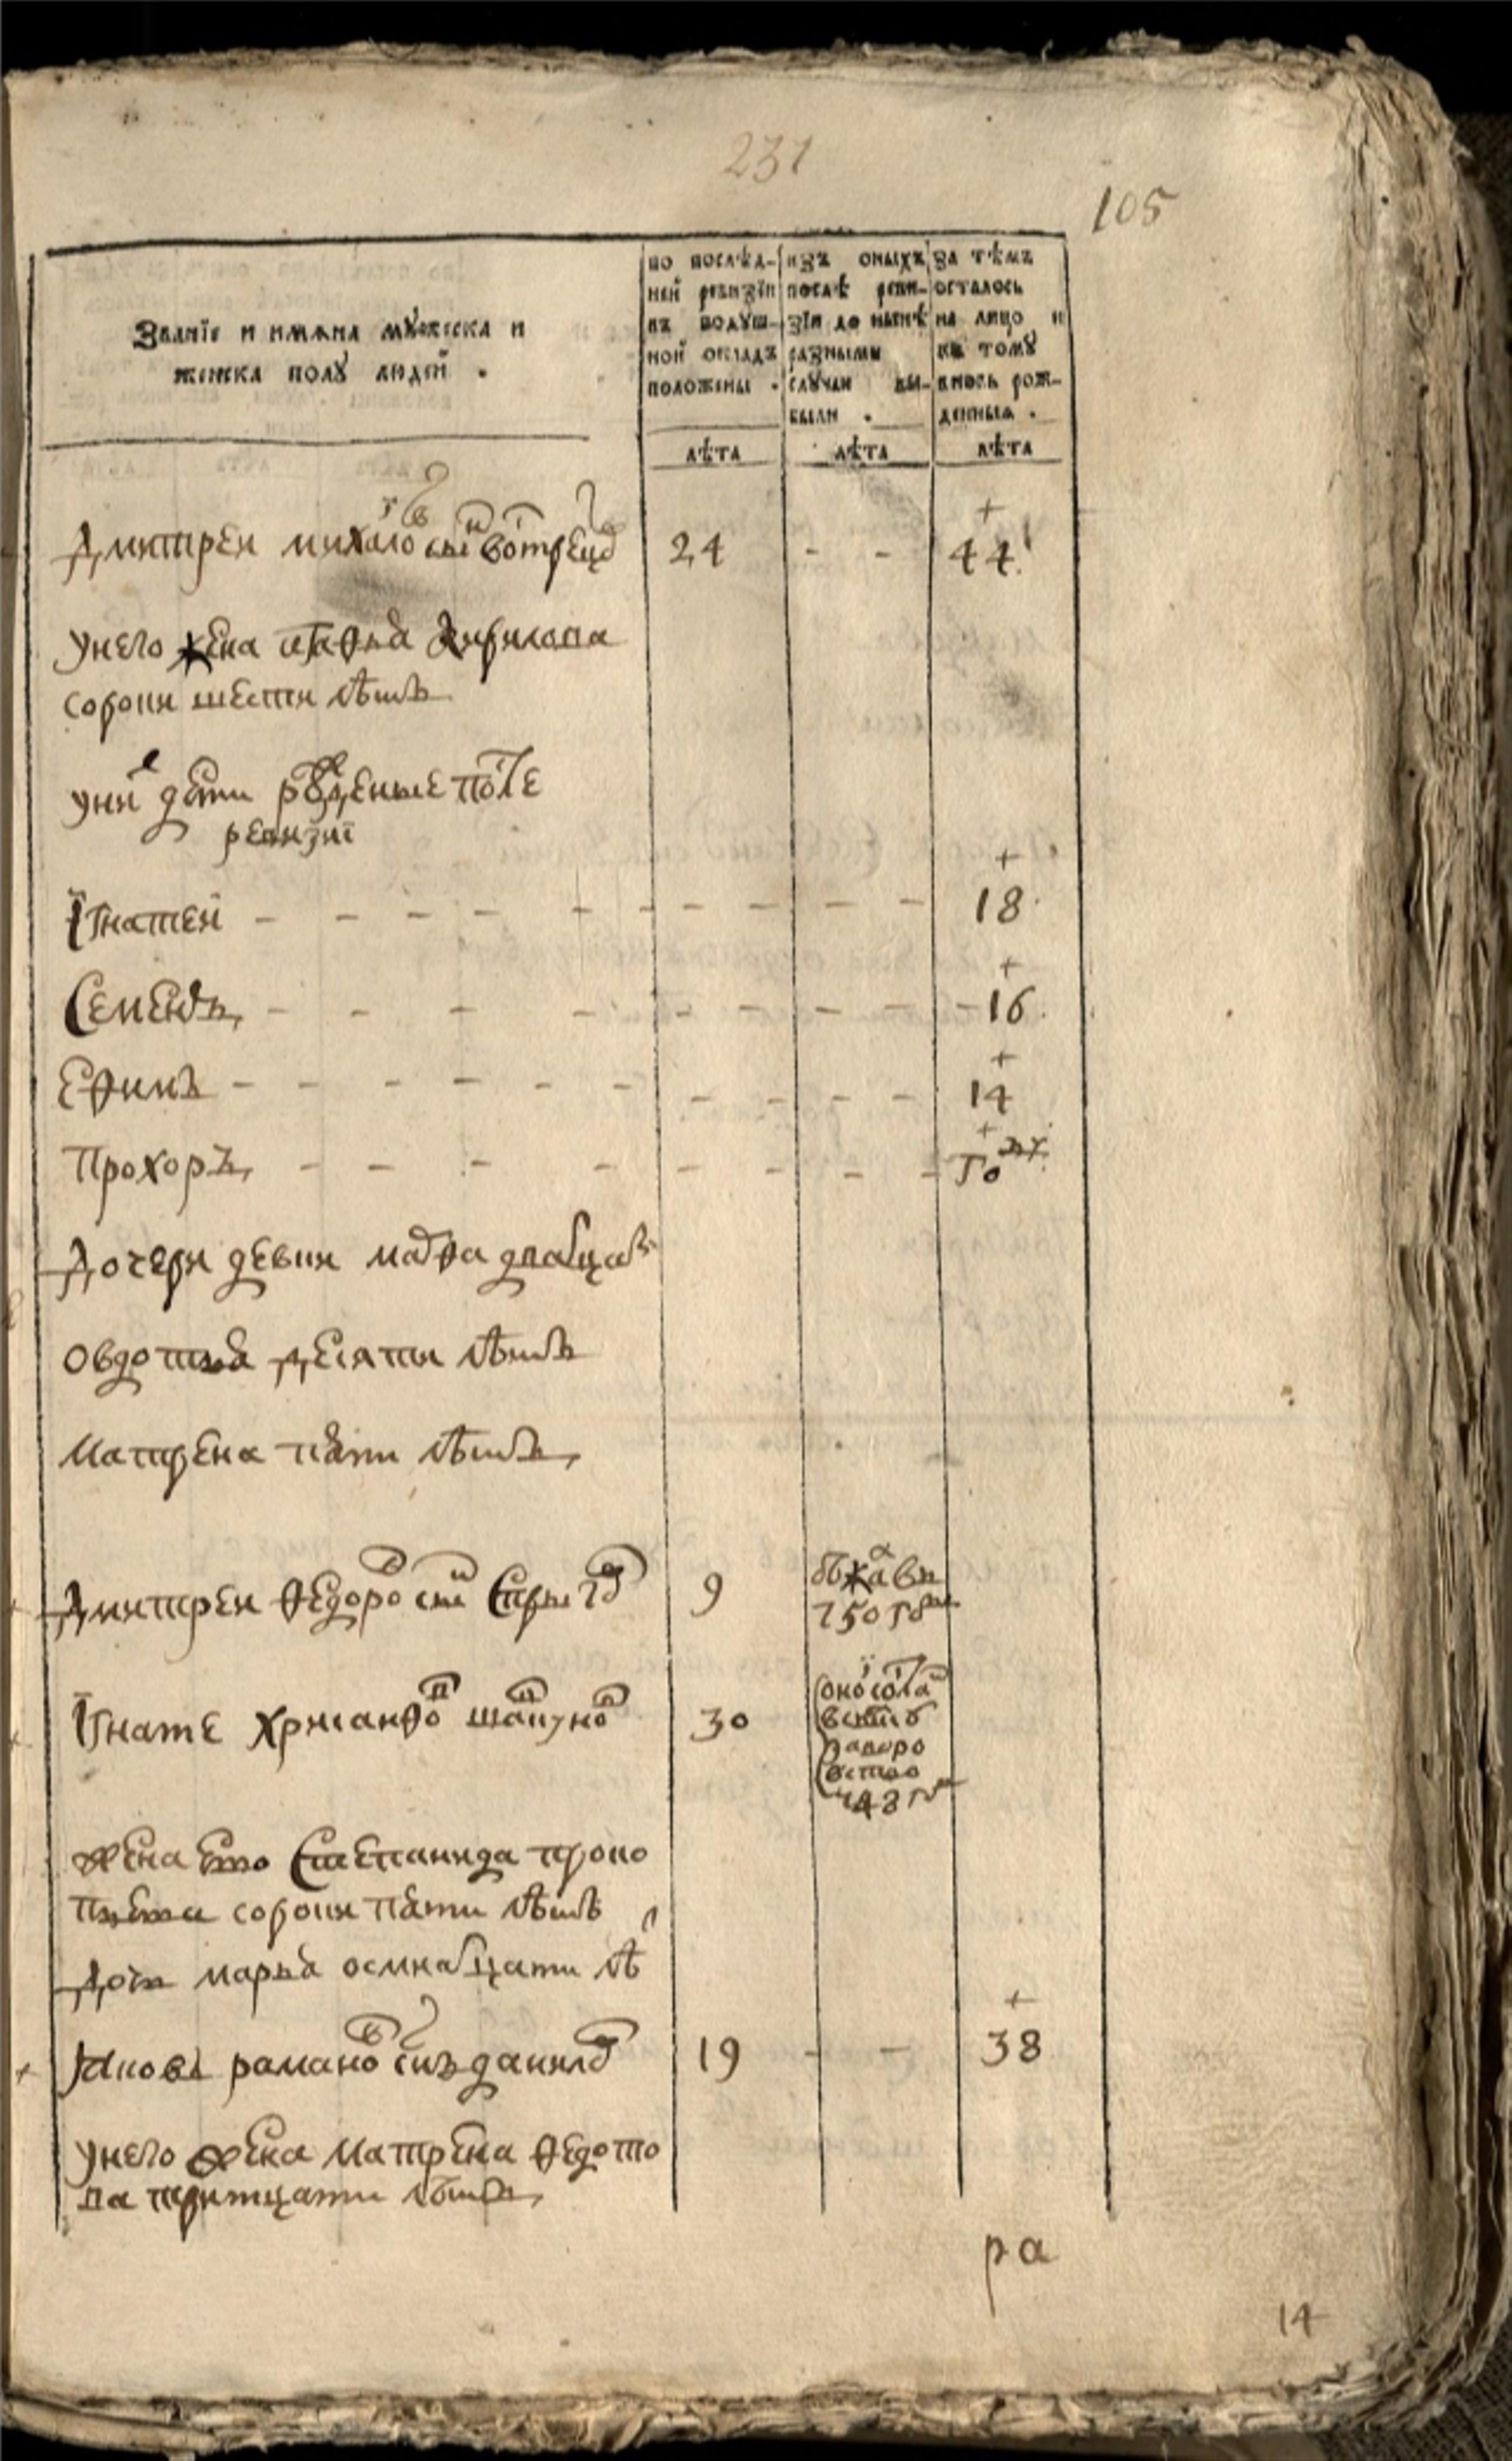 231
105
Званїе и имѧна мꙋжеска и
женска полꙋ людей .
по послѣд-
ней ревизїи
въ подуш-
ной окладъ
положены .
изъ оныхъ
послѣ реви-
зїи до нынѣ
разными
случаи вы-
были .
За тѣмъ
осталось
на лицо и
къ томꙋ
вновь рож-
денныя .
лѣта лѣта лѣта
+
Дмитреи михаило сн 24 - - 44
У него жена
сороки шести лѣтъ
у ни дети рожденые после
ревизиї
+
Їгнатей - - - - - - - - - 18
+
Семенъ - - - - - - - - - 16
+
Ефимъ - - - - - - - - - - 14
+
Прохоръ - - - - - - - - -
Дочери девки марфа двацат
Овдотья десяти лѣтъ
Матрена пяти лѣтъ
Дмитреи федоро сн 9 бежа в
750 г
Їгнате хрисанфо 30
43 г
жена ево Степанида проко
пьева сороки пяти лѣтъ
Дочь марья осмнатцати лѣ
+
Яковъ рамано снъ данило 19 - - 38
У него жена Матрена федото
ва тритцати лѣтъ
ра
14